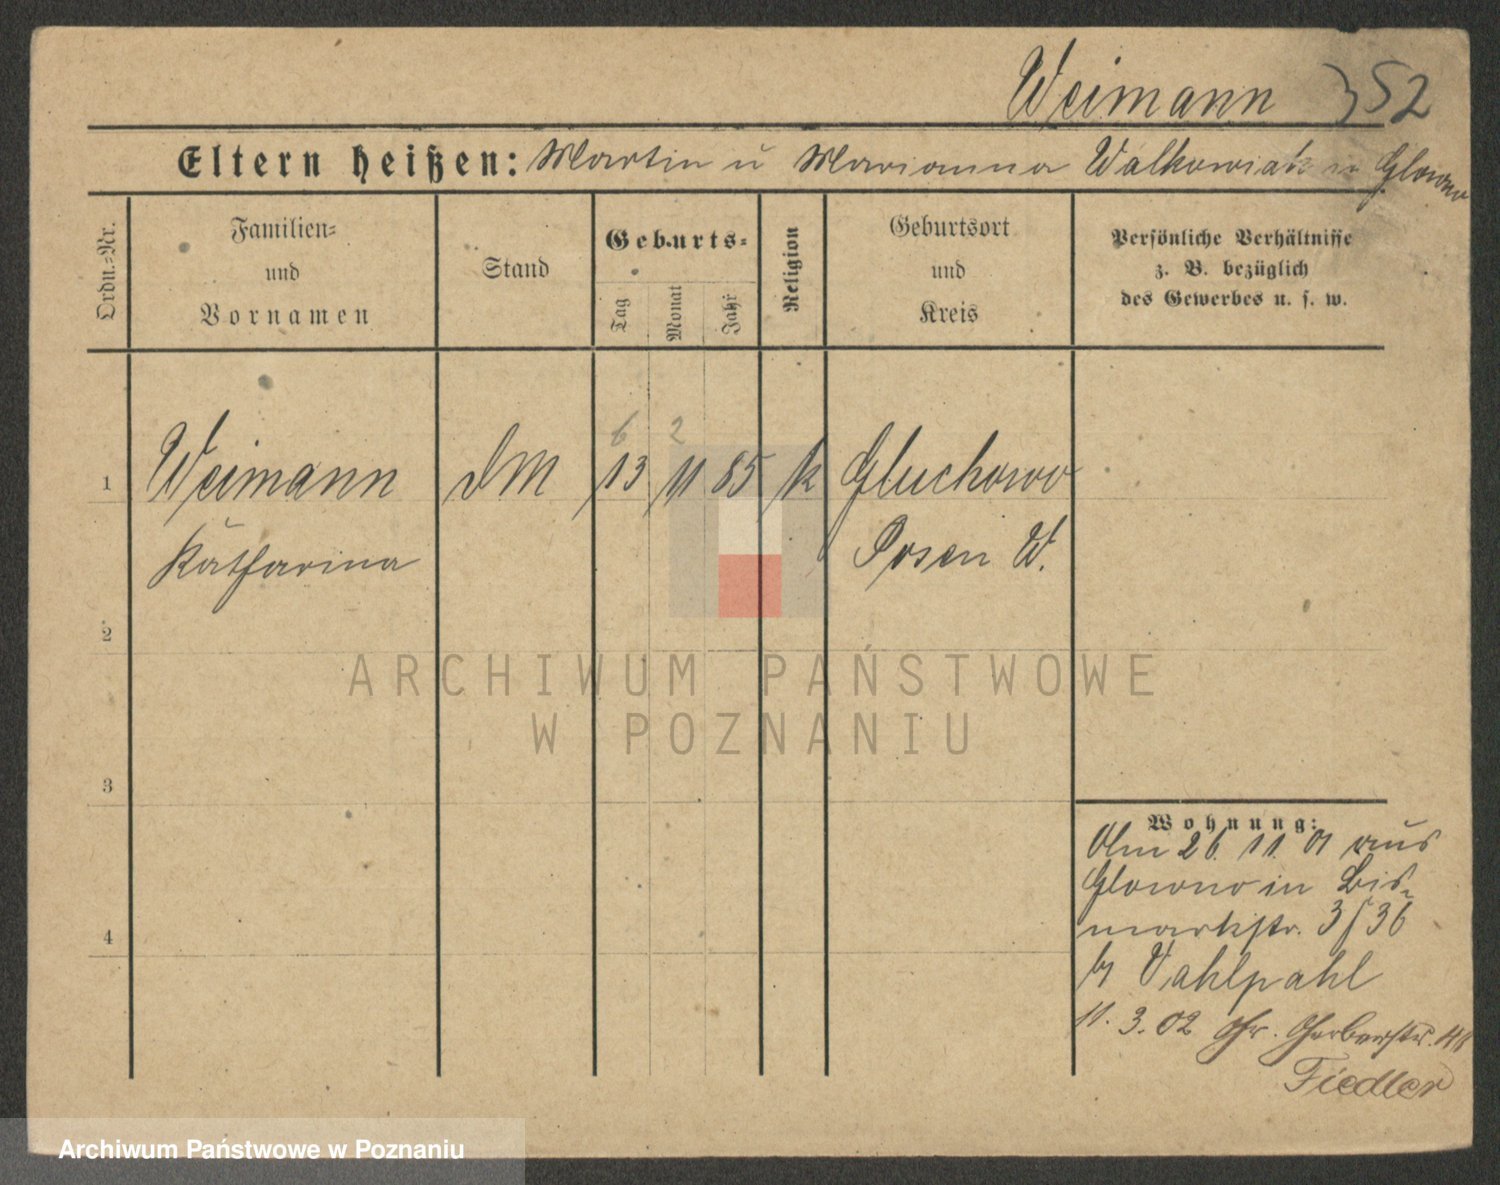 Weimann 352
Eltern heißen: Martin u Marianna Walkowiak in Glowno
Ordn.-Nr.
Familien-
und
Vornamen
Stand
Geburts-
Tag
Monat
Jahr
Religion
Geburtsort
und
Kreis
Persönliche Verhältnisse
z. B. bezüglich
des Gewerbes u. s. w.
6 2
1 Weimann DM 13 11 85 k Gluchowo
Katharina Posen W.
2
3
4
Wohnung:
Am 26. 11. 01 aus
Glowno in Bis-
markstr. 3 36
b/ Vahlpahl
11. 3. 02 Gr. Gerberstr.
Fiedler
ARCHIWUM PAŃSTWOWE
W POZNANIU
Archiwum Państwowe w Poznaniu